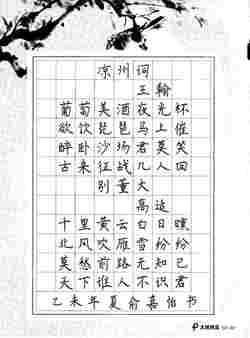 凉州词
王翰
葡萄美酒夜光杯
欲饮琵琶马上催
醉卧沙场君莫笑
古来征战几人回
别董大
高适
十里黄云白日曛
北风吹雁雪纷纷
莫愁前路无知己
天下谁人不识君
乙未年夏俞嘉伯书